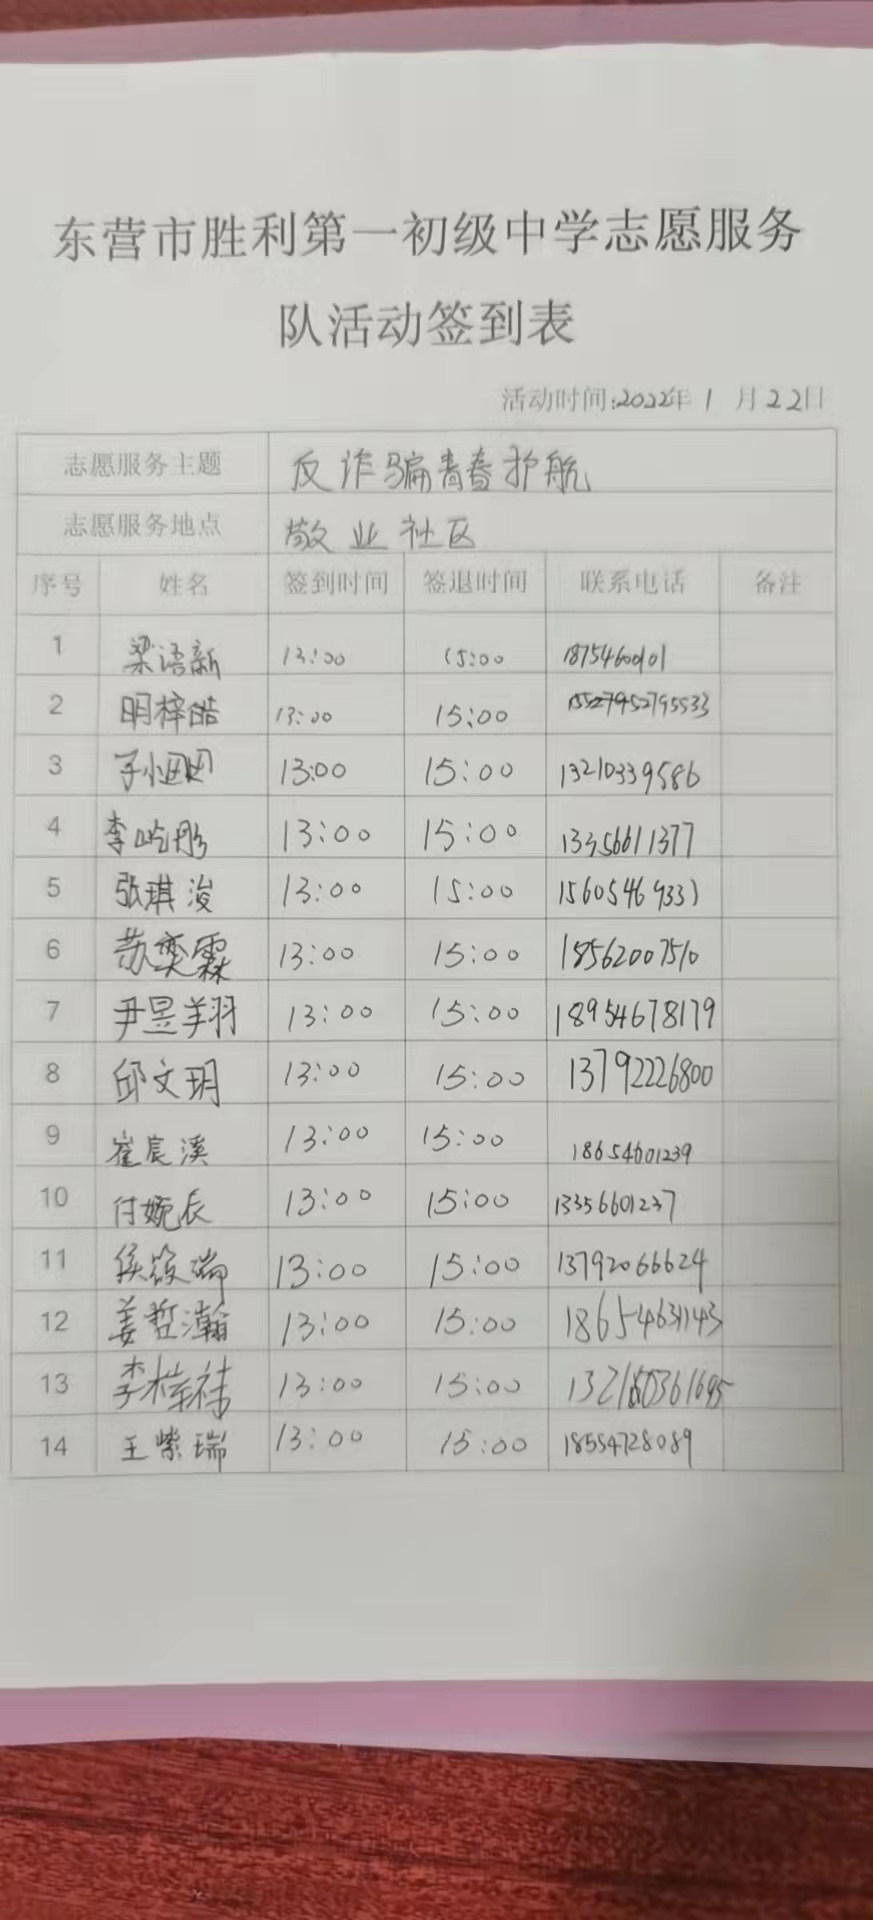 东营市胜利第一初级中学志愿服务
队活动签到表
活动时间:2022年1月22日
志愿服务主题 反诈骗青春护航
志愿服务地点 敬业社区
序号 姓名 签到时间 签退时间 联系电话 备注
1 梁语新 13:00 15:00 18754600101
2 明梓皓 13:00 15:00
3 13:00 15:00 13210339586
4 李屹彤 13:00 15:00 13356611377
5 张琪浚 13:00 15:00 15605469331
6 苏奕霖 13:00 15:00 18562007510
7 尹昱翔 13:00 15:00 18954678179
8 邱文玥 13:00 15:00 13792226800
9 崔宸溪 13:00 15:00 18654601239
10 付婉辰 13:00 15:00 13356601237
11 侯筱瑞 13:00 15:00 13792066624
12 姜哲瀚 13:00 15:00 18654631143
13 李梓祎 13:00 15:00
14 王紫瑞 13:00 15:00 18554728089